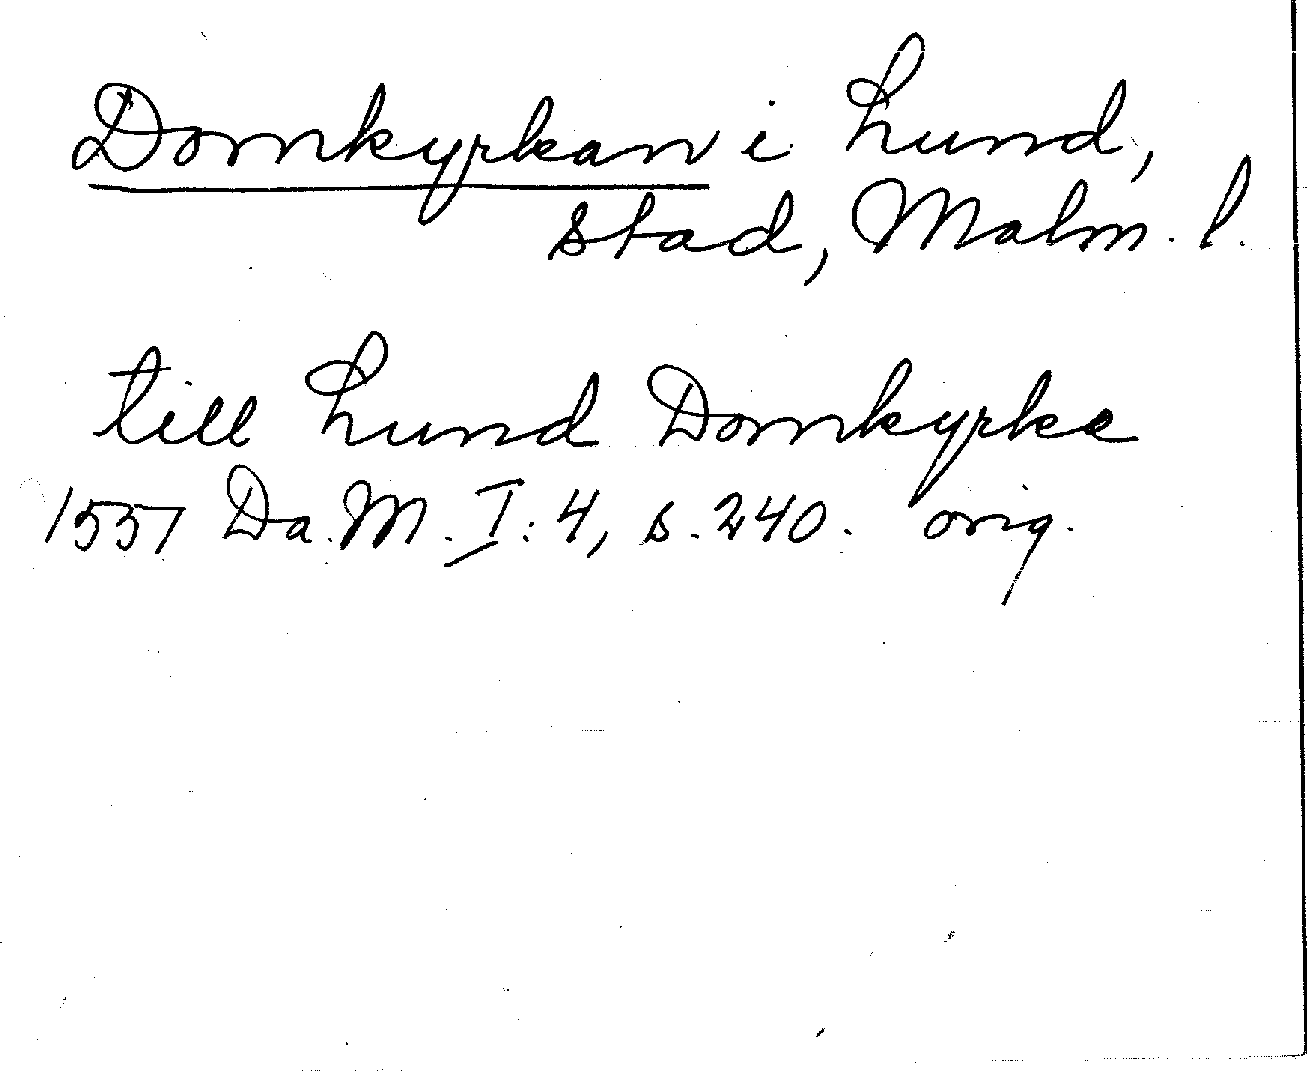 Domkyrkan i Lund,
stad, Malm. l.
till Lund Domkyrke
1537 Da. M. I: 4, s. 240. orig.